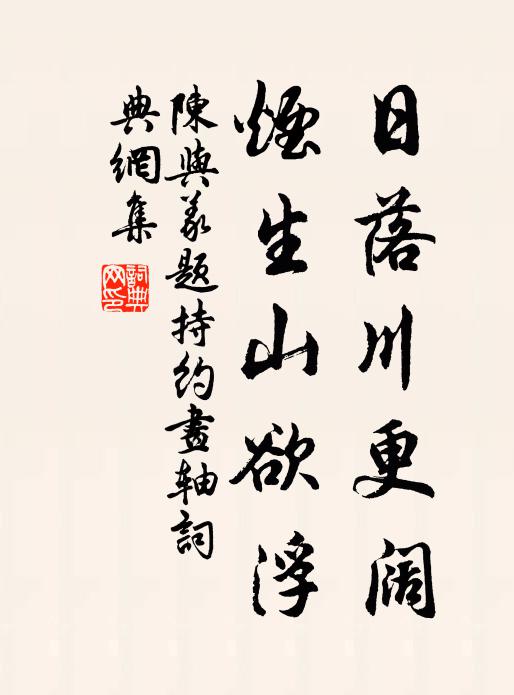 日落川更阔
煙生山欲浮
陳與義題持約畫軸詞
典網集
詞典网印